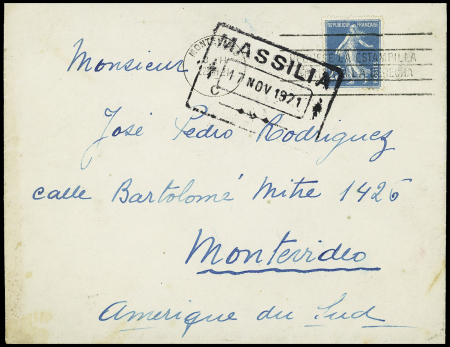 REPUBLIQUE FRANÇAISE
MASSILIA
17 NOV 1921
LA ESTAMPILLA
Monsieur
José Pedro Rodriguez
calle Bartolomé Mitre 1426
Montevideo
Amerique du Sud